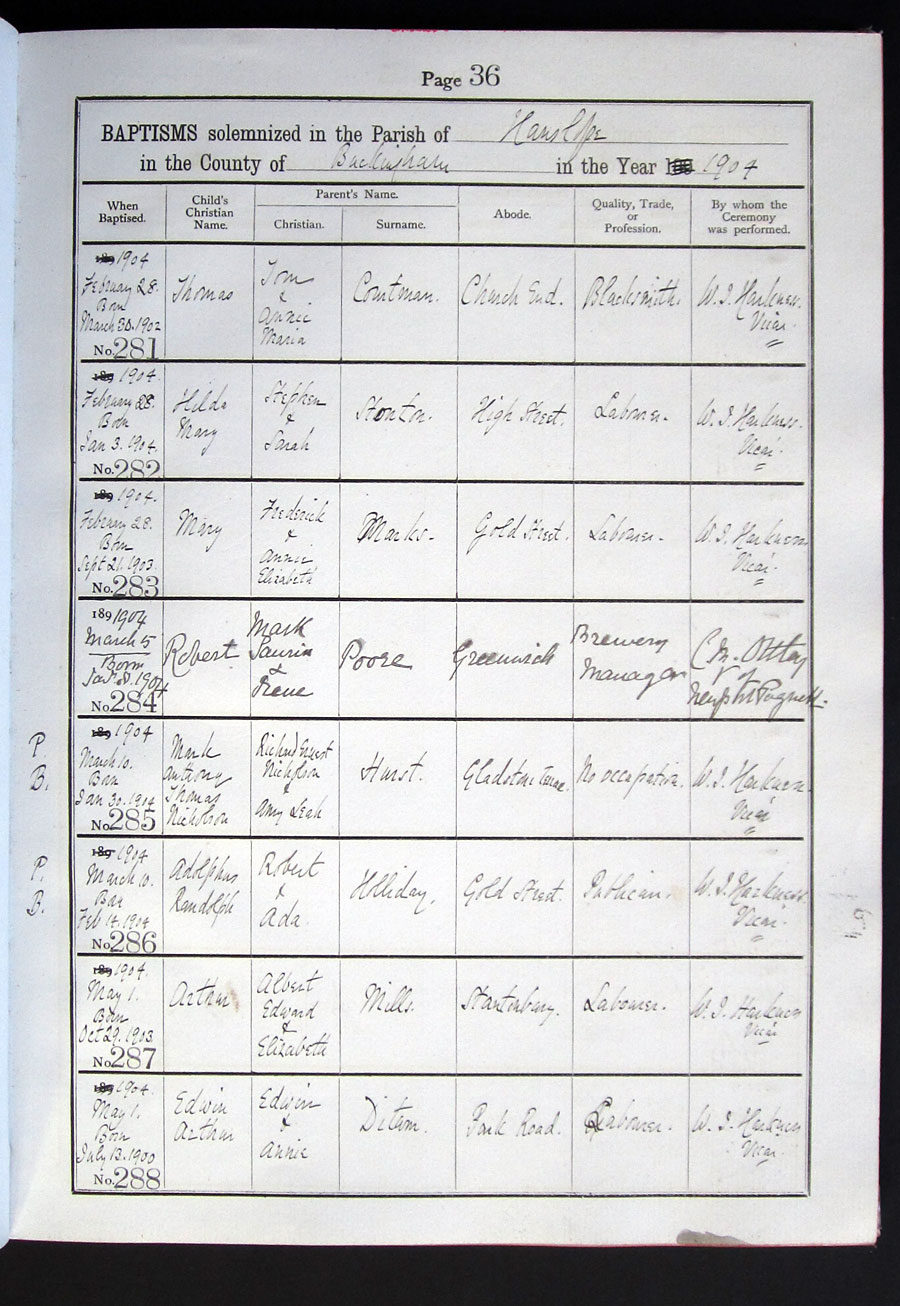 Page 36
BAPTISMS solemnized in the Parish of Hanslope
in the County of Buckingham in the Year 1904
When Baptised.
Child's Christian Name.
Parent's Name.
Christian.
Surname.
Abode.
Quality, Trade, or Profession.
By whom the Ceremony was performed.
1904
February 28.
Born
March 30. 1902
No. 281
Thomas
Tom
&
Annie
Maria
Church End.
Blacksmith.
W. J. Harkness.
Vicar.
1904.
February 28.
Born
Jan 3. 1904.
No. 282
Hilda
Mary
Stephen
&
Sarah
Stonton.
High Street.
Labourer.
W. J. Harkness.
Vicar.
1904.
February 28.
Born
Sept 21. 1903.
No. 283
Mary
Frederick
&
Annie
Elizabeth
Marks.
Gold Street.
Labourer.
W. J. Harkness
Vicar.
189 1904
March 5
Born
1904
No. 284
Robert
Mark
&
Irene
Poore
Greenwich
Brewery
Manager
C. M. Ottley
V of
Newp<sup>t</sup> Pagnell.
P.
B.
1904
March 10.
Born
Jan 30. 1904
No. 285
Mark
Anthony
Thomas
Nicholson
Richard Ernest
Nicholson
&
Amy Leah
Hurst.
Gladstone Terrace.
No occupation.
W. J. Harkness
Vicar
P.
B.
1904
March 10.
Born
Feb 14. 1904
No. 286
Adolphus
Randolph
Robert
&
Ada
Holliday.
Gold Street.
Publican.
W. J. Harkness
Vicar.
1904.
May 1.
Born
Oct 29. 1903.
No. 287
Arthur
Albert
Edward
&
Elizabeth
Mills.
Stantonbury.
Labourer.
W. J. Harkness
Vicar
1904.
May 1.
Born
July 13. 1900
No. 288
Edwin
Arthur
Edwin
&
Annie
Park Road.
Labourer.
W. J. Harkness
Vicar.